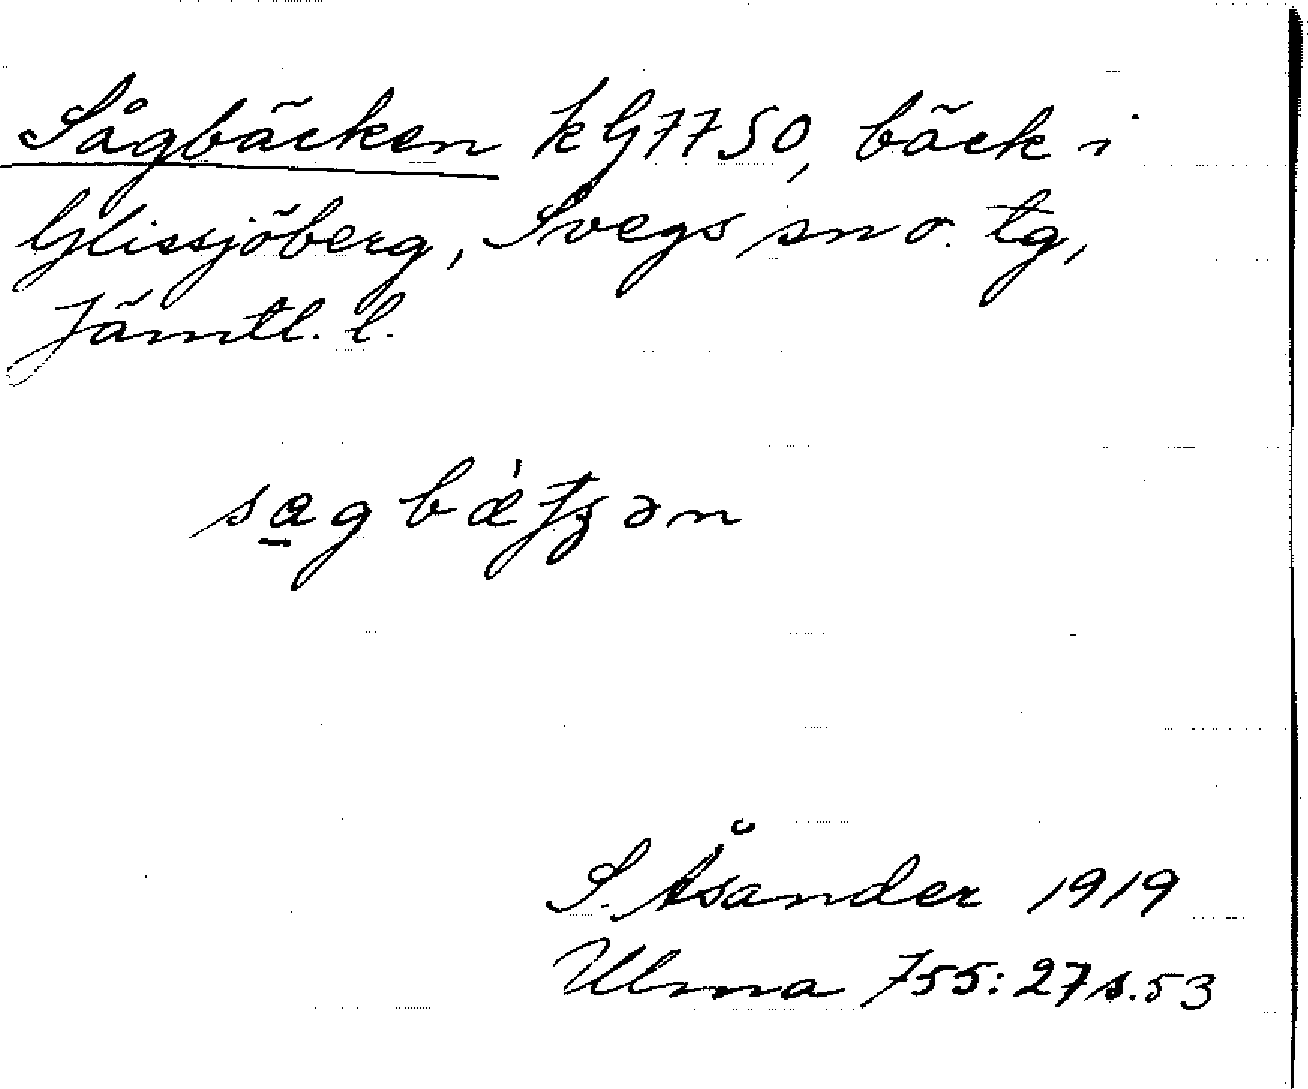 Sågbäcken kG7750, bäck i
Glissjöberg, Svegs sn o. tg,
Jämtl. l.
S. Åsander 1919
Ulma 755:27 s.53